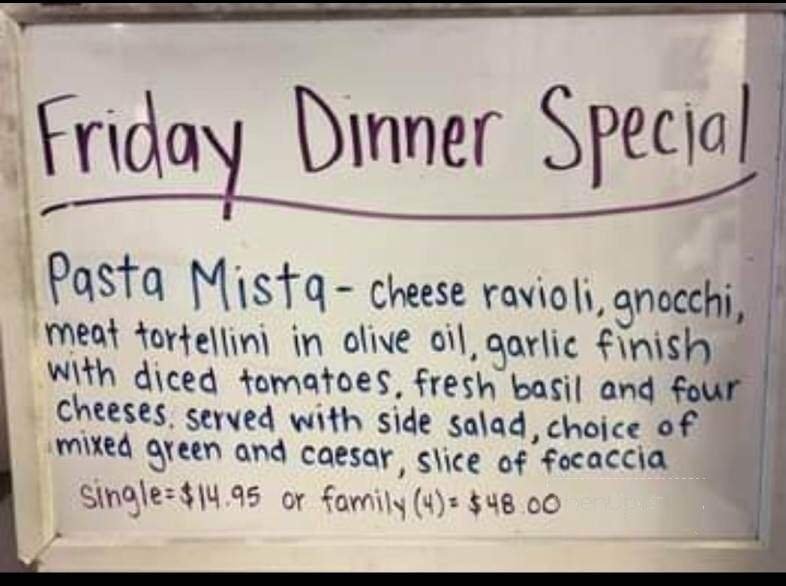 Friday Dinner Special
Pasta Mista - cheese ravioli, gnocchi,
meat tortellini in olive oil, garlic finish
with diced tomatoes, fresh basil and four
cheeses. served with side salad, choice of
mixed green and caesar, slice of focaccia
single=$14.95 or family (4)= $48.00